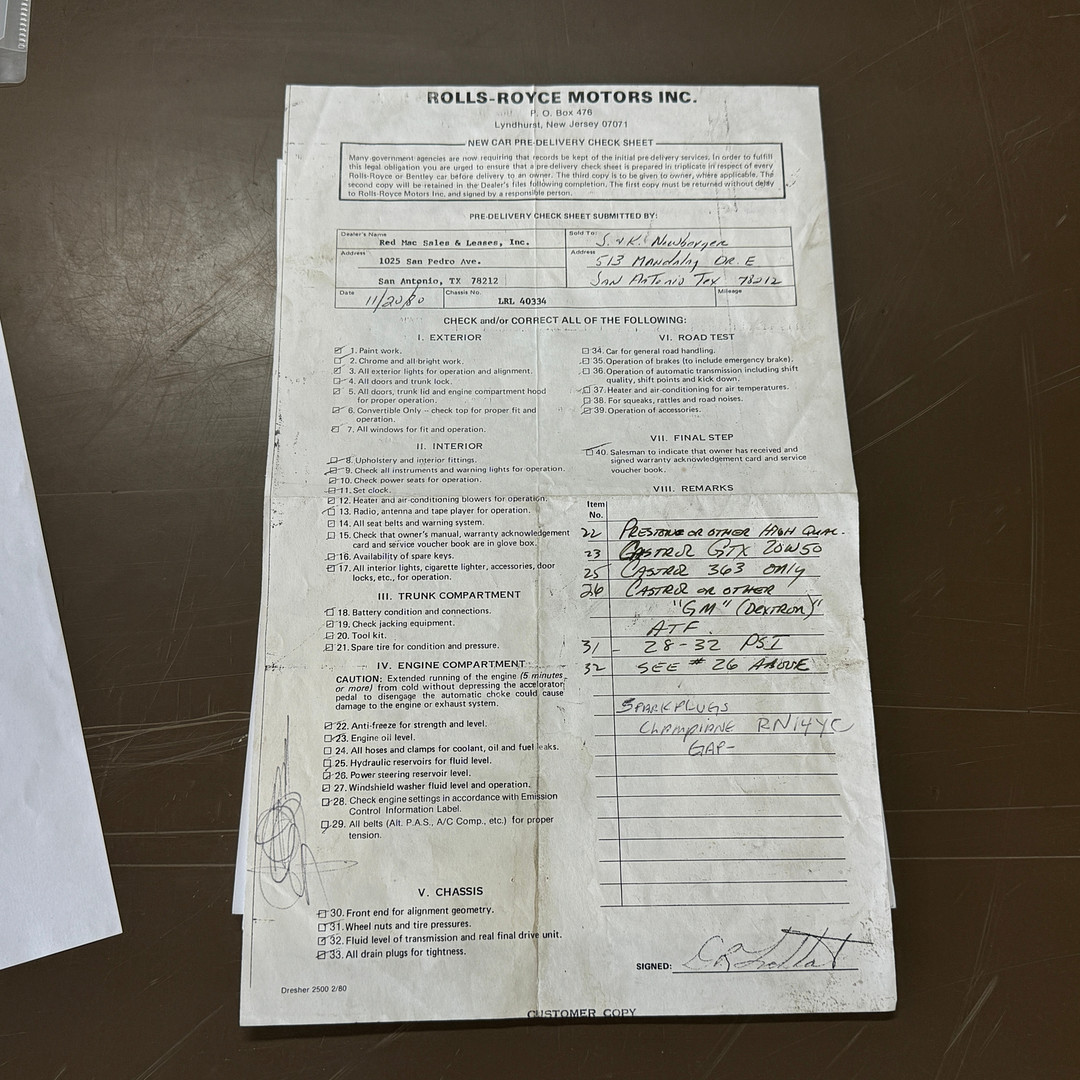 ROLLS-ROYCE MOTORS INC.
P. O. Box 476
Lyndhurst, New Jersey 07071
NEW CAR PRE-DELIVERY CHECK SHEET
Many government agencies are now requiring that records be kept of the initial pre-delivery services. In order to fulfill
this legal obligation you are urged to ensure that a pre-delivery check sheet is prepared in triplicate in respect of every
Rolls-Royce or Bentley car before delivery to an owner. The third copy is to be given to owner, where applicable. The
second copy will be retained in the Dealer's files following completion. The first copy must be returned without delay
to Rolls-Royce Motors Inc. and signed by a responsible person.
PRE-DELIVERY CHECK SHEET SUBMITTED BY:
Dealer's Name
Red Mac Sales & Leases, Inc.
Address
1025 San Pedro Ave.
San Antonio, TX 78212
Sold To:
S. & K. Newberger
Address
513 Mandalay Dr. E
San Antonio Tex 78212
Date
11/20/80
Chassis No.
LRL 40334
Mileage
CHECK and/or CORRECT ALL OF THE FOLLOWING:
I. EXTERIOR
1. Paint work.
2. Chrome and all bright work.
3. All exterior lights for operation and alignment.
4. All doors and trunk lock.
5. All doors, trunk lid and engine compartment hood
for proper operation.
6. Convertible Only – check top for proper fit and
operation.
7. All windows for fit and operation.
II. INTERIOR
8. Upholstery and interior fittings.
9. Check all instruments and warning lights for operation.
10. Check power seats for operation.
11. Set clock.
12. Heater and air-conditioning blowers for operation.
13. Radio, antenna and tape player for operation.
14. All seat belts and warning system.
15. Check that owner's manual, warranty acknowledgement
card and service voucher book are in glove box.
16. Availability of spare keys.
17. All interior lights, cigarette lighter, accessories, door
locks, etc., for operation.
III. TRUNK COMPARTMENT
18. Battery condition and connections.
19. Check jacking equipment.
20. Tool kit.
21. Spare tire for condition and pressure.
IV. ENGINE COMPARTMENT
CAUTION: Extended running of the engine (5 minutes
or more) from cold without depressing the accelerator
pedal to disengage the automatic choke could cause
damage to the engine or exhaust system.
22. Anti-freeze for strength and level.
23. Engine oil level.
24. All hoses and clamps for coolant, oil and fuel leaks.
25. Hydraulic reservoirs for fluid level.
26. Power steering reservoir level.
27. Windshield washer fluid level and operation.
28. Check engine settings in accordance with Emission
Control Information Label.
29. All belts (Alt. P.A.S., A/C Comp., etc.) for proper
tension.
V. CHASSIS
30. Front end for alignment geometry.
31. Wheel nuts and tire pressures.
32. Fluid level of transmission and real final drive unit.
33. All drain plugs for tightness.
Dresher 2500 2/80
VI. ROAD TEST
34. Car for general road handling.
35. Operation of brakes (to include emergency brake).
36. Operation of automatic transmission including shift
quality, shift points and kick down.
37. Heater and air-conditioning for air temperatures.
38. For squeaks, rattles and road noises.
39. Operation of accessories.
VII. FINAL STEP
40. Salesman to indicate that owner has received and
signed warranty acknowledgement card and service
voucher book.
VIII. REMARKS
Item
No.
22 PRESTONE OR OTHER HIGH QUAL.
23 CASTROL GTX 20W50
25 CASTROL 363 ONLY
26 CASTROL OR OTHER
"GM" (DEXTRON)
ATF.
31 - 28-32 PSI
32 SEE # 26 ABOVE
SPARK PLUGS
CHAMPIANE RN14YC
GAP-
SIGNED:
CUSTOMER COPY